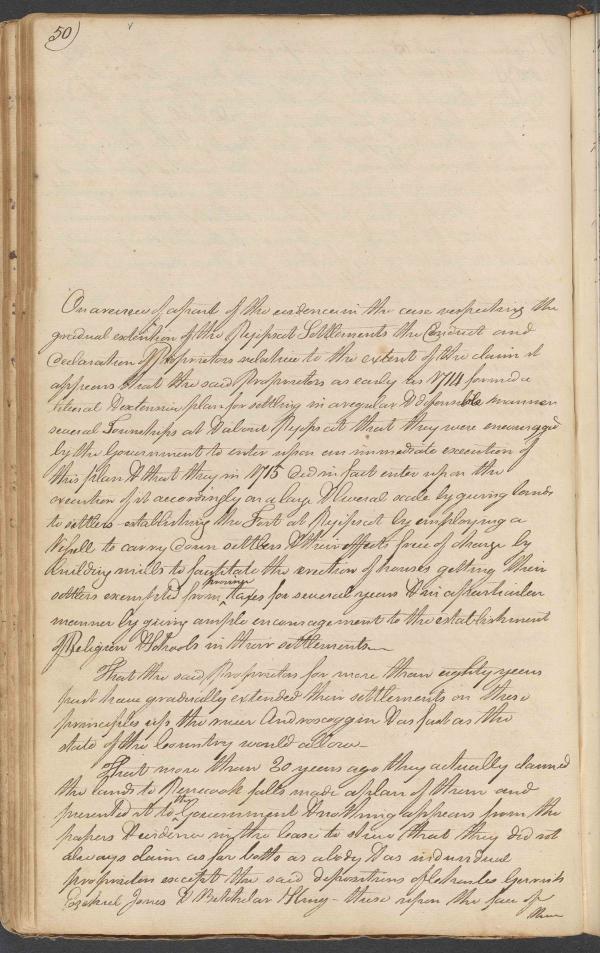 50)
On a review of a part of the evidence in the case respecting the
gradual extention of the Pejepscot Settlements the Conduct and
declaration of Proprietors relative to the extent of the claim it
appears that the said Proprietors as early as 1714 formed a
liberal & extensive plan for settling in a regular & defensible manner
several Townships at & about Pejepscot that they were encouraged
by the Government to enter upon an immediate execution of
this plan & that they in 1715 did in fact enter upon the
execution of it accordingly on a large & liberal scale by giving lands
to settlers establishing the Fort at Pejepscot by employing a
Vessell to carry down settlers & their effects free of charge by
building mills to facilitate the erection of houses getting their
settlers exempted from province taxes for several years & in a particular
manner by giving ample encouragement to the establishment
of Religion & Schools in their settlements
That the said Proprietors for more than eighty years
past have gradually extended their settlements on these
principles up the river Androscoggin & as fast as the
state of the Country would allow
That more than 30 years ago they actually claimed
the lands to falls made a plan of them and
presented it to the Government & nothing appears from the
papers & evidence in the case to shew that they did not
always claim as far both as a body & as individual
proprietors except the said depositions of Charles Gerrish
Ezekiel Jones & Batchelar Kinny - these upon the face of
them